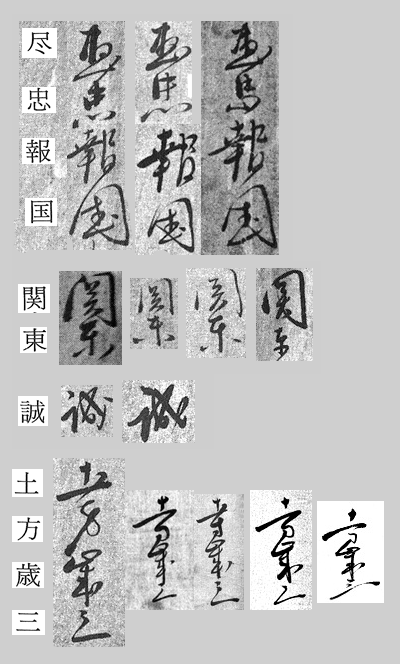 尽忠報国 盡忠報國 盡忠報國 盡忠報國
関東 関東 関東 関東 関東
誠 誠 誠
土方歳三 土方歳三 土方歳三 土方歳三 土方歳三 土方歳三